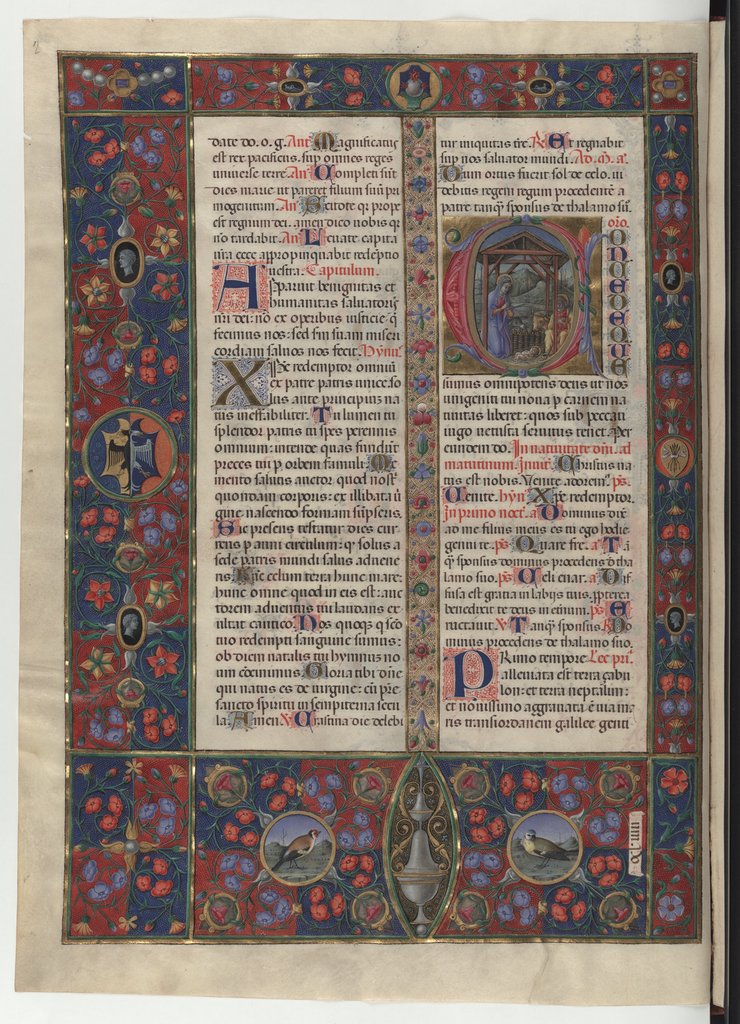 date do. o. g. Ant Magnificatus
est rex pacificus. sup omnes reges
universe terre. An Completi sūt
dies marie ut pareret filium suū pri
mogenitum. An Scitote qr prope
est regnum dei. amen dico nobis q
nō tardabit. An Levate capita
vr̄a ecce appropinquabit redēptio
vestra. Capitulum.
Apparuit benignitas et
humanitas salvatoris
nr̄i dei: nō ex operibus iusticie q̄
fecimus nos: sed sm̄ suam miseri
cordiam salvos nos fecit. Hynn⁹
Xp̄e redemptor omniū
ex patre patris unice. so
lus ante principiū na
tus ineffabiliter. Tu lumen tu
splendor patris tu spes perennis
omnium: intende quas fundūt
preces tui p orbem famuli. Me
mento salutis auctor quod nost
quondam corporis: ex illibata v̄
gine nascendo formam sūpseris.
Sic presens testatur dies cur
rens p anni circulum: q solus a
sede patris mundi salus advene
ris. Hūc celum terra hunc mare:
hunc omne quod in eis est: auc
torem adventus tui laudans ex
ultat cantico. Nos quoq̄ q̄ sco
tuo redempti sanguine sumus:
ob diem natalis tui hymnus no
vum cōcinimus. Gloria tibi dn̄e
qui natus es de virgine: cū pr̄e
sancto spiritu in sempiterna secu
la. Amen. V Crastina die delebi
tur iniquitas tr̄e. R Et regnabit
sup nos salvator mundi. Ad. M. a.
Dum ortus fuerit sol de celo. vi
debitis regem regum procedentē a
patre tanq̄ sponsus de thalamo suo.
orō.
CONCEDE QUE
sumus omnipotens deus ut nos
unigeniti tui nova p carnem na
tivitas liberet: quos sub peccati
iugo vetusta servitus tenet. Per
eundem do. In nativitate dn̄i. ad
matutinum. Invit. Christus na
tus est nobis. Venite adorem⁹. ps.
Venite. hyn̄. Xp̄e redemptor.
In primo noct. a Dominus dix
ad me filius meus es tu ego hodie
genui te. ps Quare fre. a Tā
q̄ sponsus dominus procedens d tha
lamo suo. ps Celi enar. a Dif
fusa est gratia in labijs tuis. propterea
benedixit te deus in eternum. ps E
ructavit. V Tanq̄ sponsus. R Do
minus procedens de thalamo suo.
PRimo tempore. Lec. pri.
alleviata est terra çabu
lon: et terra neptalim:
et novissimo aggravata ē via ma
ris transiordanem galilee genti